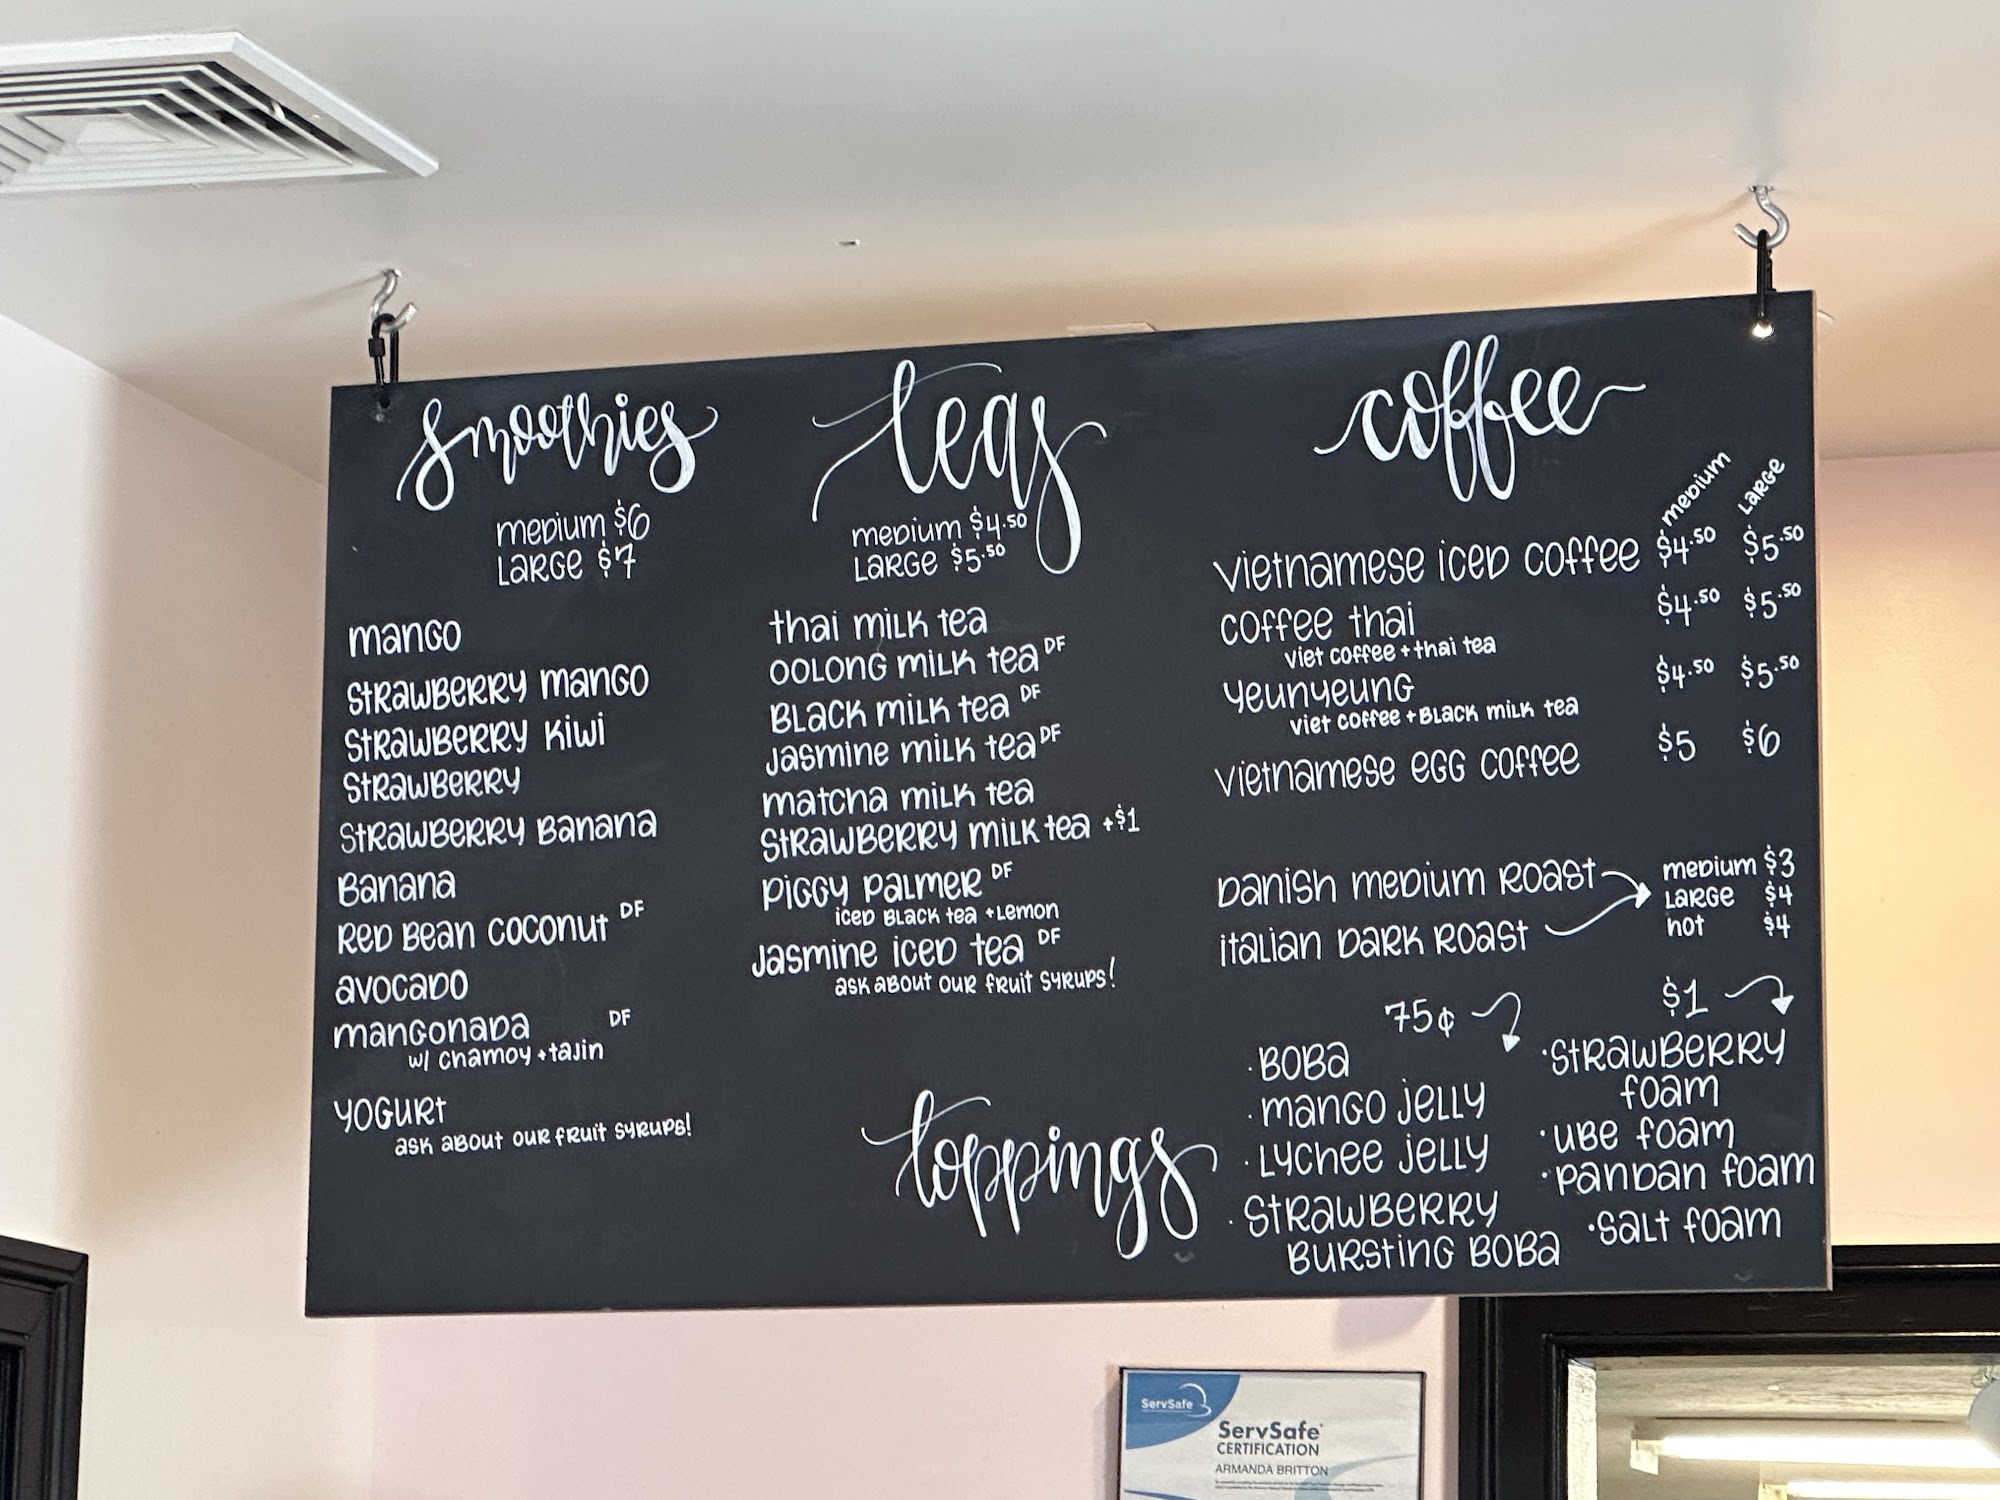 smoothies
medium $6
large $7
mango
strawberry mango
strawberry kiwi
strawberry
strawberry banana
banana
red bean coconut DF
avocado
mangonada DF
w/ chamoy + tajin
yogurt
ask about our fruit syrups!
teas
medium $4.50
large $5.50
thai milk tea
oolong milk tea DF
black milk tea DF
jasmine milk tea DF
matcha milk tea
strawberry milk tea +$1
piggy palmer DF
iced black tea + lemon
jasmine iced tea DF
ask about our fruit syrups!
coffee
medium large
vietnamese iced coffee $4.50 $5.50
coffee thai $4.50 $5.50
viet coffee + thai tea
yeunyeung $4.50 $5.50
viet coffee + black milk tea
vietnamese egg coffee $5 $6
danish medium roast
italian dark roast
medium $3
large $4
hot $4
toppings
75¢
· boba
· mango jelly
· lychee jelly
· strawberry
bursting boba
$1
· strawberry
foam
· ube foam
· pandan foam
· salt foam
ServSafe
ServSafe®
CERTIFICATION
ARMANDA BRITTON